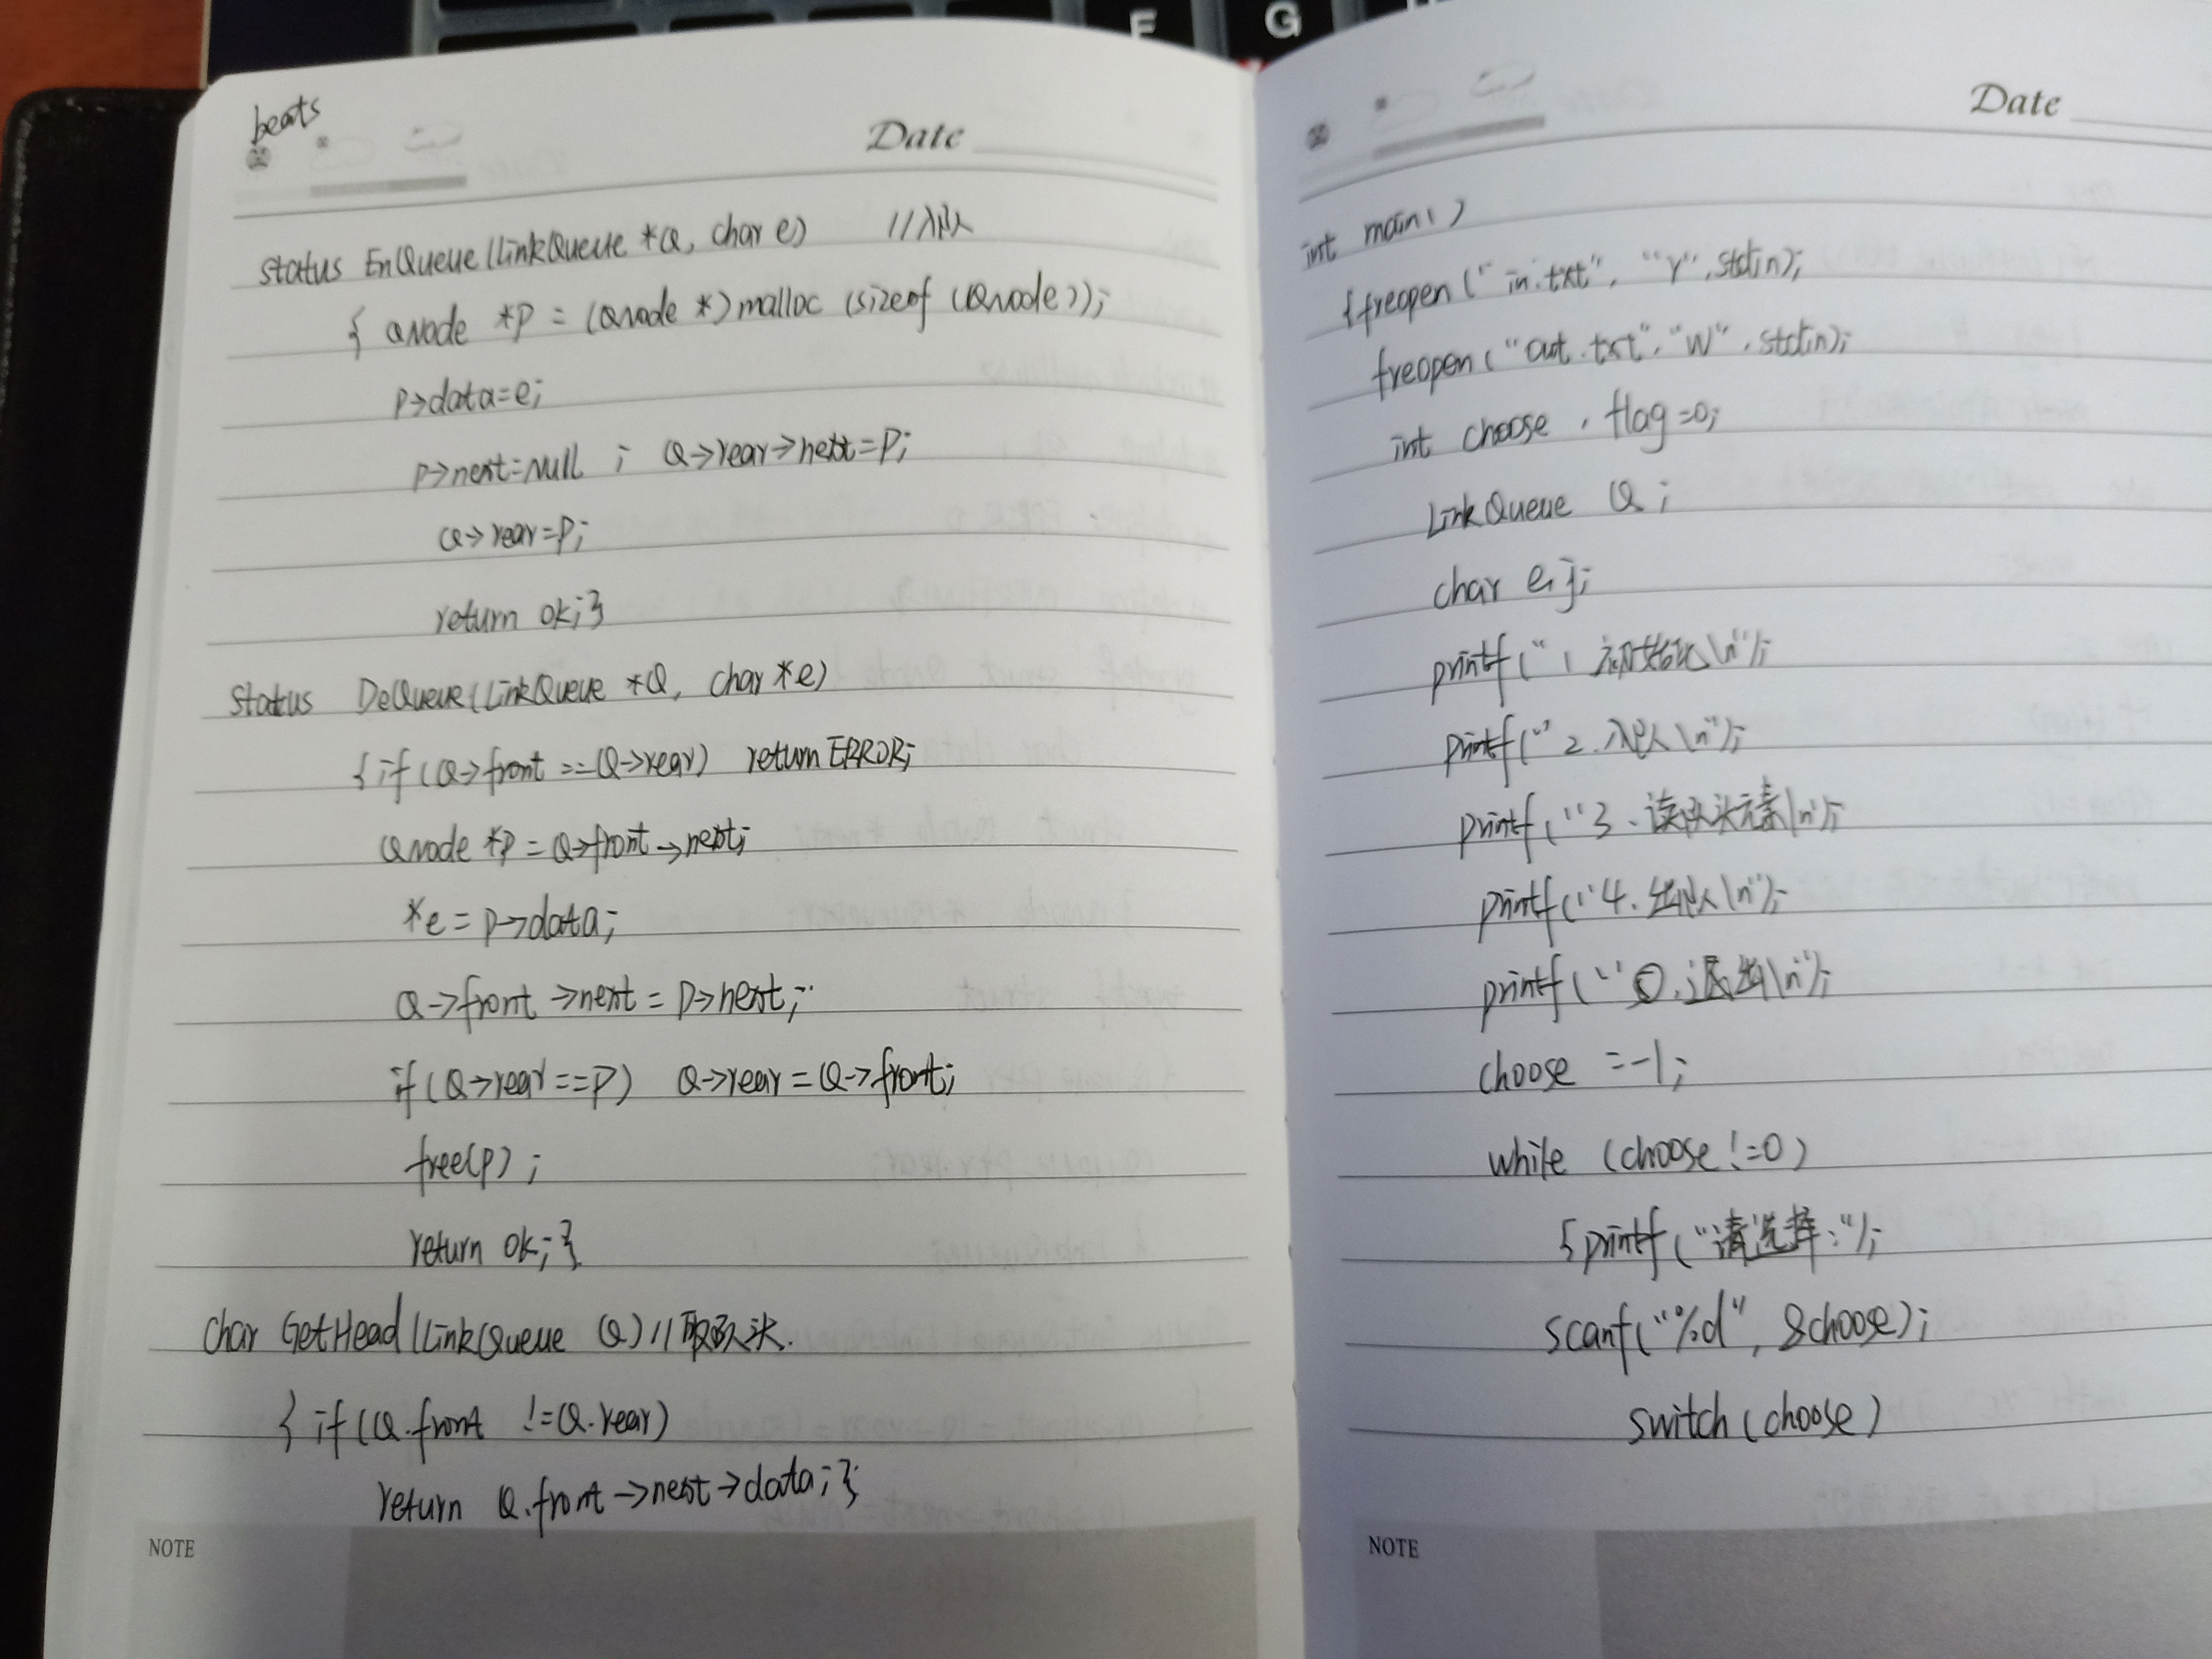 beats
Date
status EnQueue(LinkQueue *Q, char e) //入队
{ QNode *p = (QNode *)malloc (sizeof (QNode));
p->data=e;
p->next=Null ; Q->rear->next=p;
Q->rear=p;
return ok;}
Status DeQueue(LinkQueue *Q, char *e)
{if(Q->front ==Q->rear) return ERROR;
QNode *p = Q->front->next;
*e = p->data;
Q->front ->next = p->next;
if(Q->rear==p) Q->rear=Q->front;
free(p);
return ok;}
char GetHead(LinkQueue Q)//取队头.
{ if(Q.front !=Q.rear)
return Q.front->next->data;}
NOTE
Date
int main()
{freopen("in.txt", "r",stdin);
freopen("out.txt","w",stdin);
int choose, flag=0;
LinkQueue Q;
char e,j;
printf("1 初始化\n");
printf("2.入队\n");
printf("3.读队头元素\n");
printf("4.出队\n");
printf("0.退出\n");
choose =-1;
while (choose!=0)
{printf("请选择:");
scanf("%d", &choose);
switch(choose)
NOTE